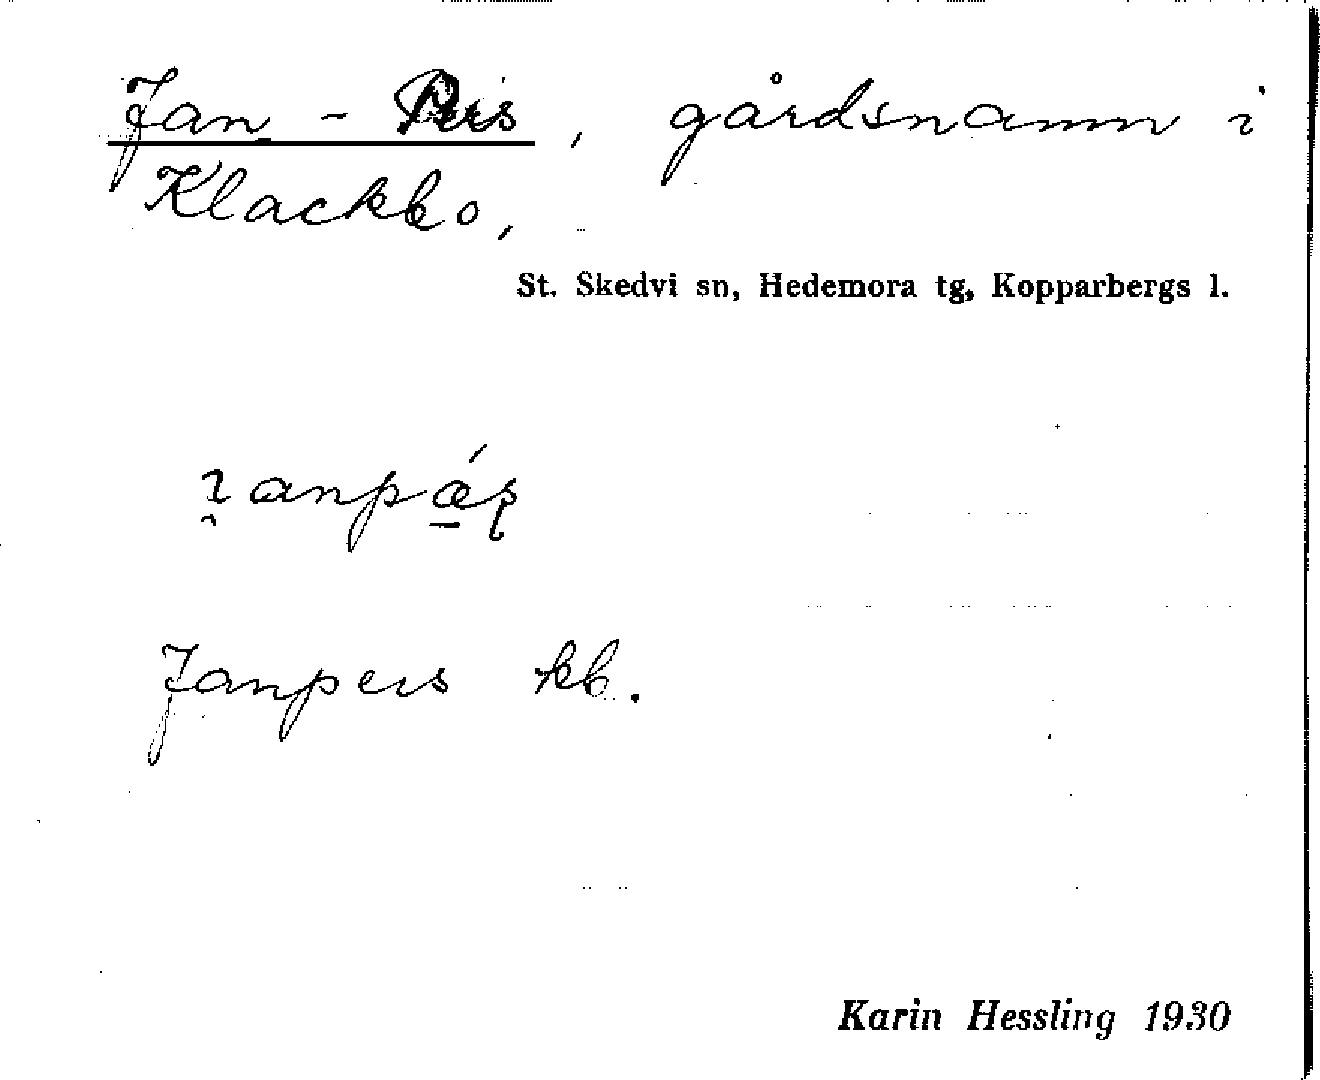 Jan - Pers, gårdsnamn i
Klackbo,
St. Skedvi sn, Hedemora tg, Kopparbergs l.
Janpers kb.
Karin Hessling 1930